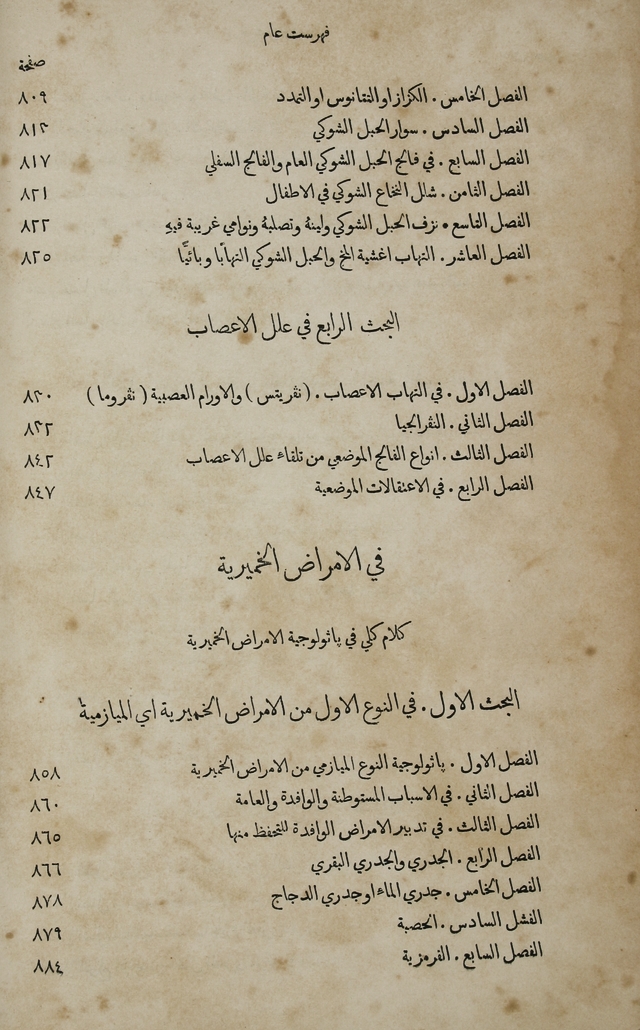 فهرست عام
صفحة
الفصل الخامس . الكزاز او التتانوس او التمدد ٨٠٩
الفصل السادس . سوار الحبل الشوكي ٨١٣
الفصل السابع . في فالج الحبل الشوكي العام والفالج السفلي ٨١٧
الفصل الثامن . شلل النخاع الشوكي في الاطفال ٨٢١
الفصل التاسع . نزف الحبل الشوكي ولينهُ وتصلبهُ ونوامي غريبة فيهِ ٨٢٢
الفصل العاشر . التهاب اغشية المخ والحبل الشوكي التهابًا وبائيًّا ٨٢٥
البحث الرابع في علل الاعصاب
الفصل الاول . في التهاب الاعصاب . ( نڤريتس ) والاورام العصبية ( نڤروما ) ٨٣٠
الفصل الثاني . النڤرالجيا ٨٣٢
الفصل الثالث . انواع الفالج الموضعي من تلقاء علل الاعصاب ٨٤٢
الفصل الرابع . في الاعتقالات الموضعية ٨٤٧
في الامراض الخميرية
كلام كلي في پاثولوجية الامراض الخميرية
البحث الاول . في النوع الاول من الامراض الخميرية اي الميازمية
الفصل الاول . پاثولوجية النوع الميازمي من الامراض الخميرية ٨٥٨
الفصل الثاني . في الاسباب المستوطنة والوافدة والعامة ٨٦٠
الفصل الثالث . في تدبير الامراض الوافدة للتحفظ منها ٨٦٥
الفصل الرابع . الجدري والجدري البقري ٨٦٦
الفصل الخامس . جدري الماء او جدري الدجاج ٨٧٨
الفشل السادس . الحصبة ٨٧٩
الفصل السابع . القرمزية ٨٨٤